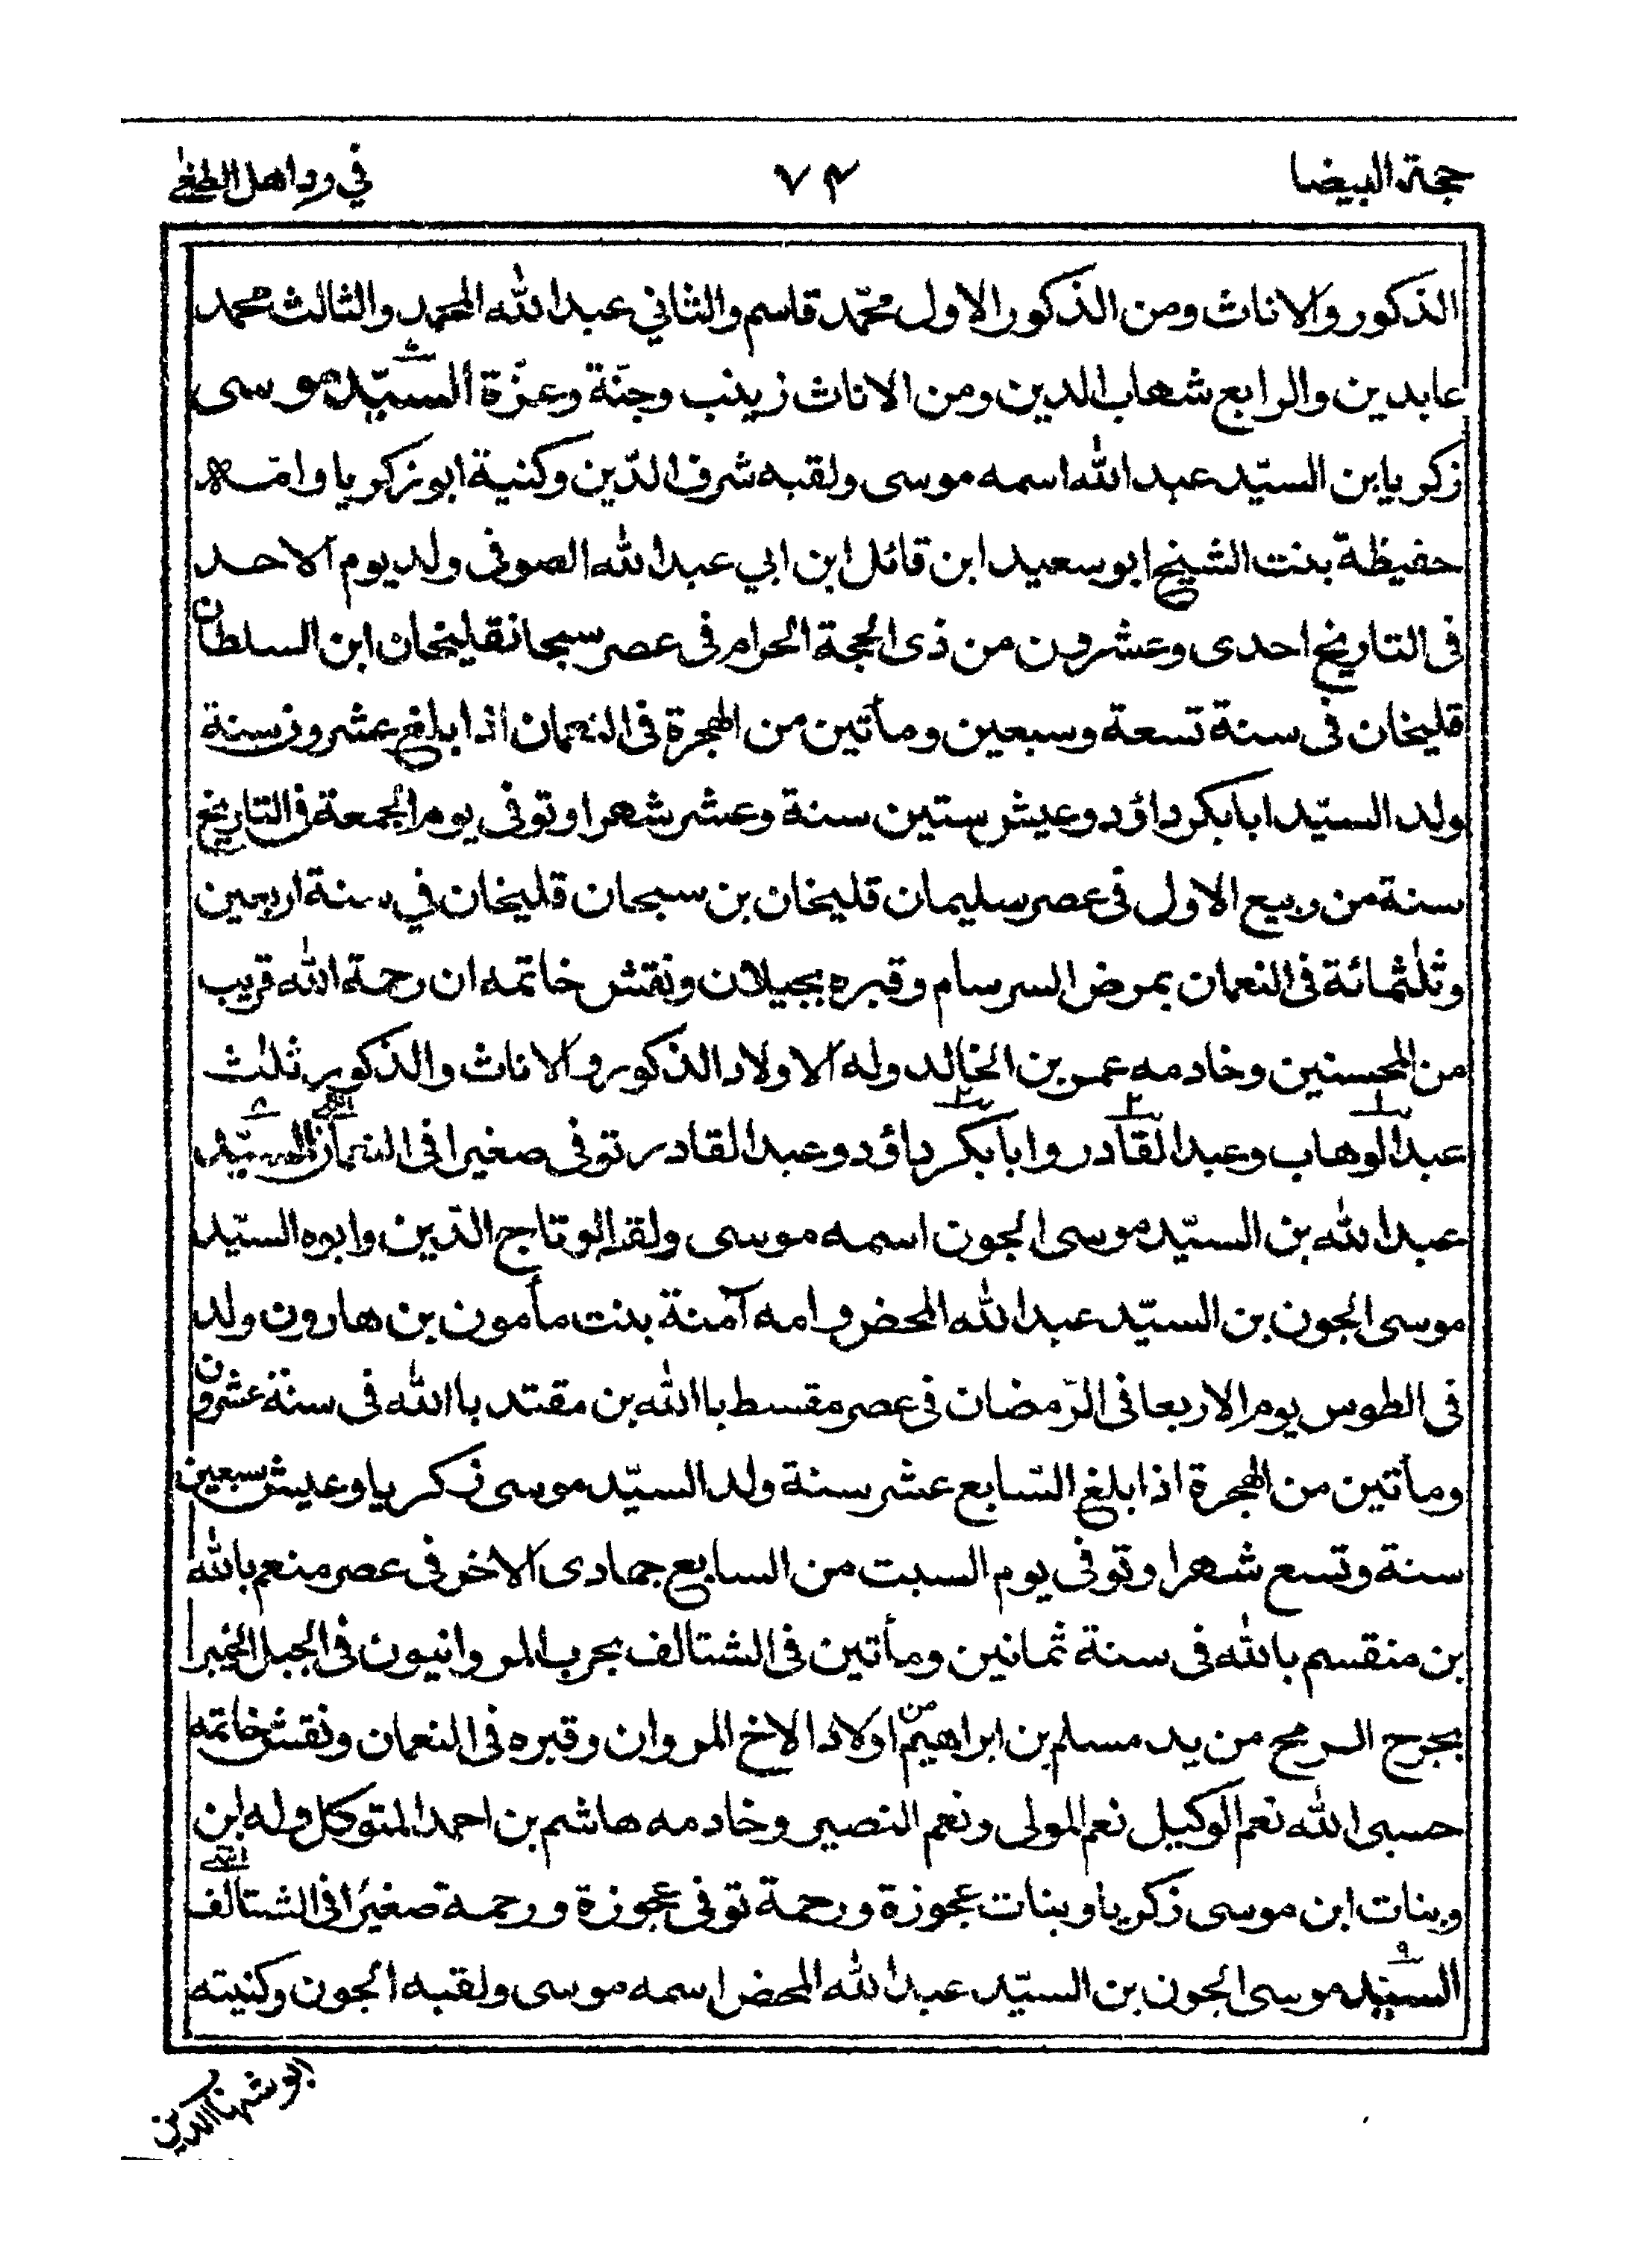 حجة البيضا ٧٤ في رد اهل الطغى
الذكور والاناث ومن الذكور الاول محمّد قاسم والثاني عبد الله المحمد والثالث محمد
عابدين والرابع شهاب الدين ومن الاناث زينب وجنّة وعزّة السيّد موسى
زكريا ابن السيّد عبد الله اسمه موسى ولقبه شرف الدّين وكنية ابو زكريا وامّه
حفيظة بنت الشيخ ابو سعيد ابن قائل ابن ابي عبد الله الصوفى ولد يوم الاحد
فى التاريخ احدى وعشرون من ذى الحجة الحرام فى عصر سبحانقليخان ابن السلطان
قليخان فى سنة تسعة وسبعين ومأتين من الهجرة فى النعمان اذا بلغ عشرون سنة
ولد السيّد ابابكر داؤد وعيش ستين سنة وعشر شهرا وتوفى يوم الجمعة فى التاريخ
سنة من ربيع الاول فى عصر سليمان قليخان بن سبحان قليخان في سنة اربعين
وثلثمائة فى النعمان بمرض السرسام وقبره بجيلان ونقش خاتمه ان رحمة الله قريب
من المحسنين وخادمه عمر بن الخالد وله الاولاد الذكور والاناث والذكور ثلث
عبد الوهاب وعبد القادر وابابكر داؤد وعبد القادر توفى صغيرا فى النعمان السيّد
عبد الله بن السيّد موسى الجون اسمه موسى ولقبه ابو تاج الدّين وابوه السيّد
موسى الجون بن السيّد عبد الله المحض وامه آمنة بنت مأمون بن هارون ولد
فى الطوس يوم الاربعا فى الرّمضان فى عصر مقسط باالله بن مقتد باالله فى سنة عشرون
ومأتين من الهجرة اذا بلغ السّابع عشر سنة ولد السيّد موسى زكريا وعيش سبعين
سنة وتسع شهرا وتوفى يوم السبت من السابع جمادى الاخر فى عصر منعم بالله
بن منقسم بالله فى سنة ثمانين ومأتين فى الشتالف بحرب المروانيون فى الجبل الخيبرا
بجرح الرمح من يد مسلم بن ابراهيم من اولاد الاخ المروان وقبره فى النعمان ونقش خاتمه
حسبى الله نعم الوكيل نعم المولى ونعم النصير وخادمه هاشم بن احمد المتوكل وله ابن
وبنات ابن موسى زكريا وبنات عجوزة ورحمة توفى عجوزة ورحمة صغيرا فى الشتالف انتهى
السيّد موسى الجون بن السيّد عبد الله المحض اسمه موسى ولقبه الجون وكنيته
ابو شهاب الدين